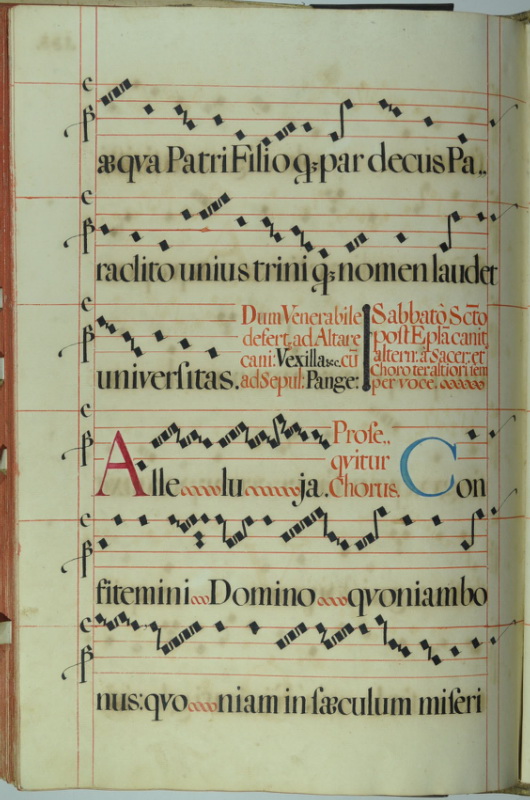 æqva Patri Filioq; par decus Pa..
raclito unius trini q; nomen laudet
universitas.
Dum Venerabile
defert: ad Altare
cani: Vexilla &c. cũ
ad Sepul: Pange:
Sabbatò Scto
post Eplã canit
altern: à Sacer: et
Choro ter altiori sem
per voce.
Alle lu ja.
Prose..
qvitur
Chorus.
Con
fitemini Domino qvoniam bo
nus: qvo niam in sæculum miseri